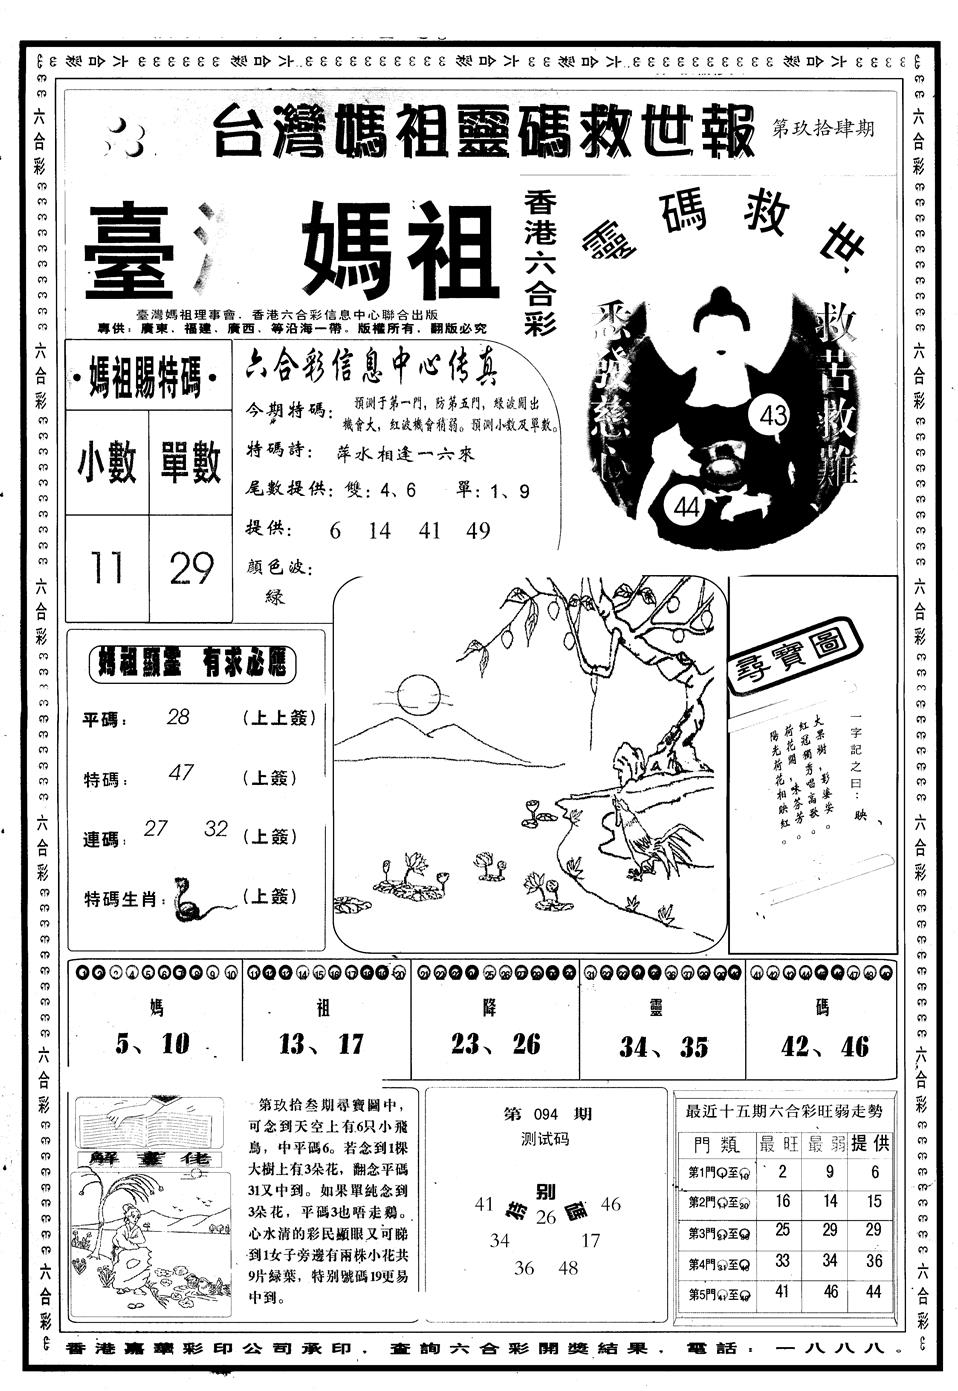 台灣媽祖靈碼救世報
第玖拾肆期
臺灣 媽祖
香港六合彩
靈碼救世
臺灣媽祖理事會．香港六合彩信息中心聯合出版
專供：廣東．福建．廣西．等沿海一帶。版權所有．翻版必究
悉發慈心
救苦救難
43
44
·媽祖賜特碼·
小數 單數
11 29
六合彩信息中心传真
今期特碼：預測于第一門，防第五門，綠波開出
機會大，紅波機會稍弱。預測小數及單數。
特碼詩：萍水相逢一六來
尾數提供：雙：4、6 單：1、9
提供： 6 14 41 49
顏色波：
綠
媽祖顯靈 有求必應
平碼： 28 (上上簽)
特碼： 47 (上簽)
連碼： 27 32 (上簽)
特碼生肖： (上簽)
尋寶圖
一字記之曰：映
大果樹，影婆娑。
紅冠獨秀唱高歌。
荷花開，味芬芳。
陽光荷花相映紅。
媽 祖 降 靈 碼
5、10 13、17 23、26 34、35 42、46
解畫佬
第玖拾叁期尋寶圖中，
可念到天空上有6只小飛
鳥，中平碼6。若念到1棵
大樹上有3朵花，翻念平碼
31又中到。如果單純念到
3朵花，平碼3也唔走鷄。
心水清的彩民顯眼又可睇
到1女子旁邊有兩株小花共
9片緑葉，特别號碼19更易
中到。
第 094 期
测试码
特别圖
41 26 46
34 17
36 48
最近十五期六合彩旺弱走勢
門類 最旺 最弱 提供
第1門①至⑩ 2 9 6
第2門⑪至⑳ 16 14 15
第3門㉑至㉚ 25 29 29
第4門㉛至㊵ 33 34 36
第5門㊶至㊾ 41 46 44
香港嘉華彩印公司承印．查詢六合彩開獎結果．電話：一八八八。